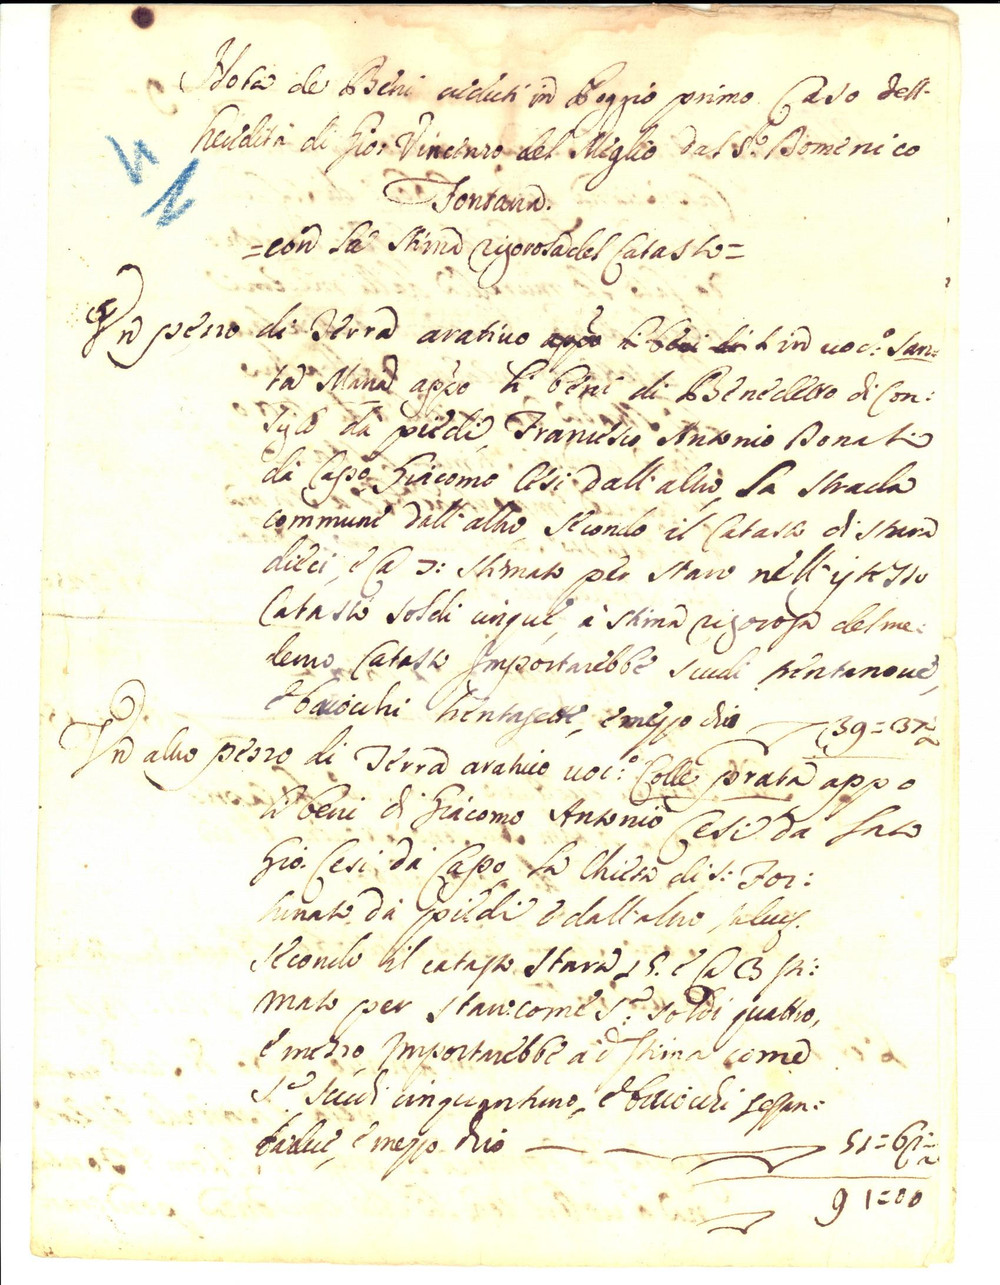 Nota de Beni aiduti in Poggio primo Caso dell-
heredità di Gio: Vincenzo del Miglio dal S.r Domenico
Fontana.
=con la stima rigorosa del Catasto=
Un pezzo di Terra arativo app.o li beni in voc.o San=
ta Maria app.o li beni di Benedetto di Con=
da piedi, Francesco Antonio Donati
da Capo Giacomo Cesi dall'altro, la strada
commune dall'altro, secondo il Catasto di stara
dieci, e C 3: stimato per staro nell'istesso
Catasto soldi cinque, à stima rigorosa del me=
demo Catasto importarebbe scudi trentanove,
e baiocchi trentasette, e mezzo dico 39=37½
Un altro pezzo di Terra arativo voc.o Colle prata appo
li beni di Giacomo Antonio Cesi da lato
Gio. Cesi da Capo, la Chiesa di S: For=
tunato da piedi e dall'altro
secondo il catasto stara 15. e C 3 sti=
mato per staro come S.a soldi quattro,
e mezzo importarebbe a d.a stima come
S.a scudi cinquantuno, e baiocchi sessan=
tadue, e mezzo dico 51=62½
91=00